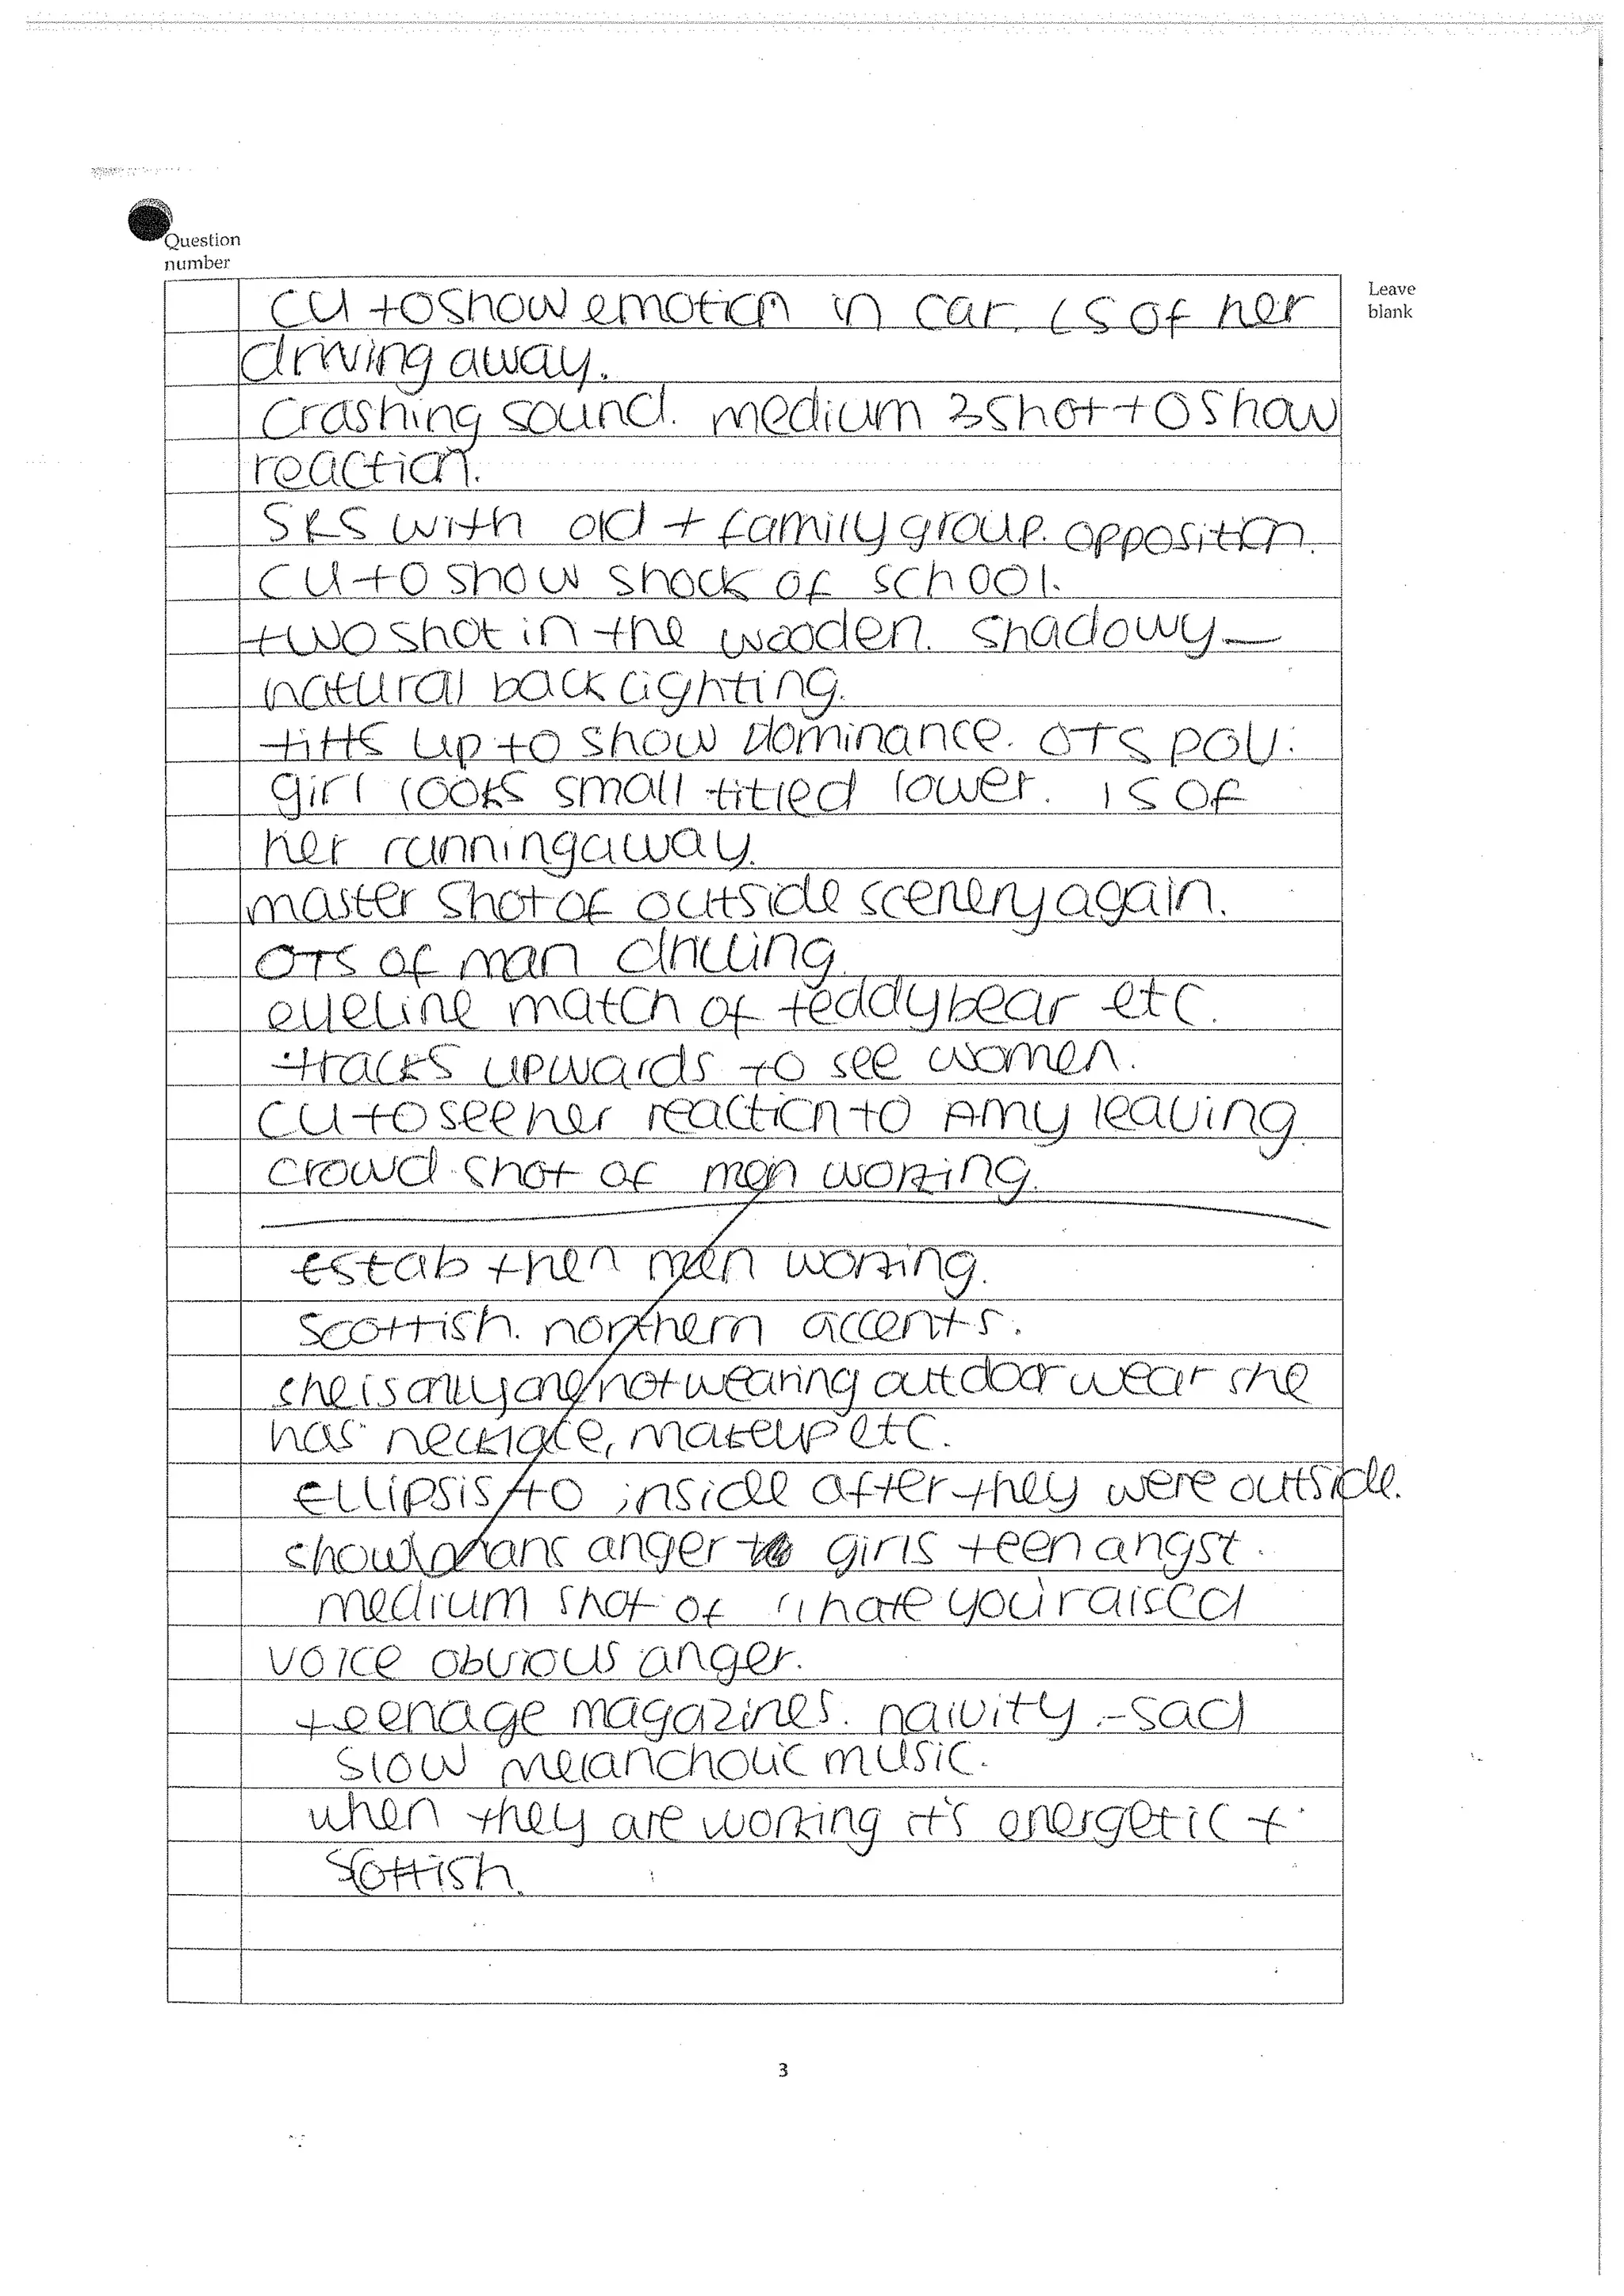 Question
number
Leave
blank
CU to show emotion in car. LS of her
driving away.
Crashing sound. medium 3 shot to show
reaction.
SRS with old + family group. opposition.
CU to show shock of school.
two shot in the wooden. shadowy –
natural back lighting.
tilts up to show dominance. OTS POV.
girl looks small titled lower. LS of
her running away.
master shot of outside scenery again.
OTS of man driving.
eyeline match of teddy bear etc.
tracks upwards to see women.
CU to see her reaction to Amy leaving.
crowd shot of men working.
Estab then men working.
Scottish. northern accents.
she is only one not wearing outdoor wear she
has necklace, makeup etc.
Ellipsis to inside after they were outside.
show mans anger to girls teen angst.
medium shot of "i hate you" raised
voice obvious anger.
teenage magazines. naivity. – sad
slow melancholic music.
when they are working it's energetic +
Scottish.
3